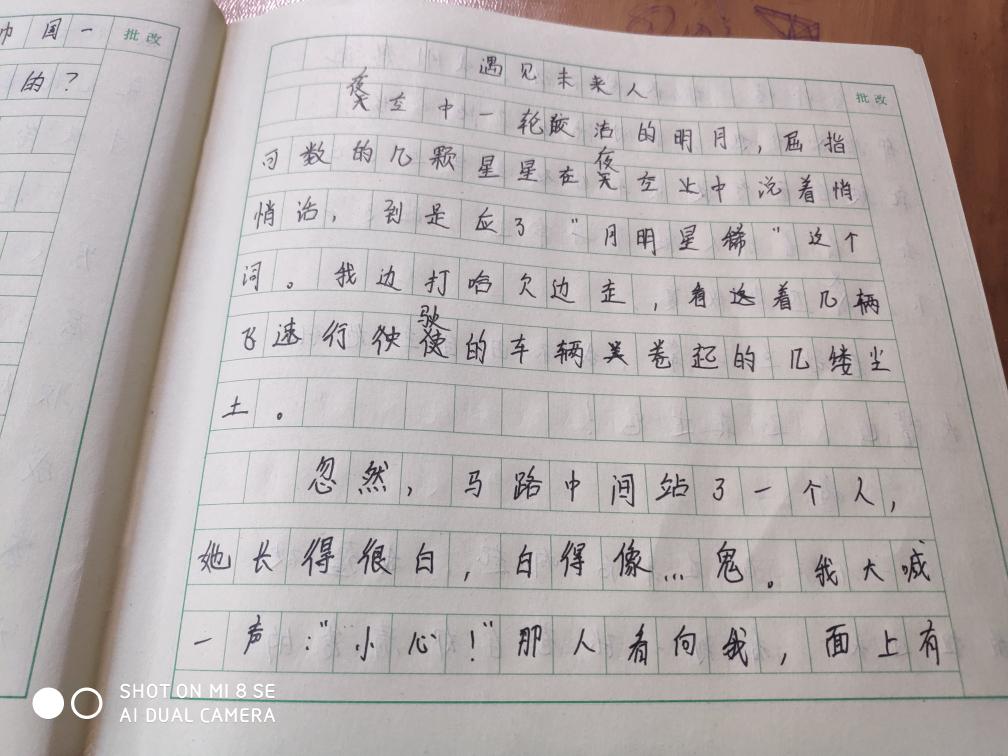 巾国一
的？
批改
遇见未来人
批改
夜空中一轮皎洁的明月，屈指
可数的几颗星星在夜空中说着悄
悄话，到是应了“月明星稀”这个
词。我边打哈欠边走，看着几辆
飞速行驶的车辆卷起的几缕尘
土。
忽然，马路中间站了一个人，
她长得很白，白得像…鬼。我大喊
一声：“小心！”那人看向我，面上有
SHOT ON MI 8 SE
AI DUAL CAMERA